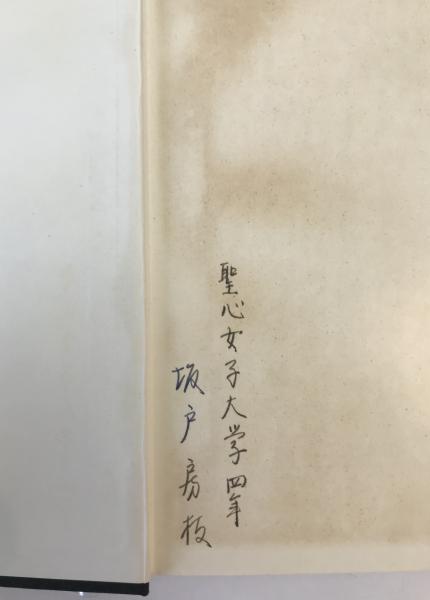 聖心女子大学四年
坂戸房枝